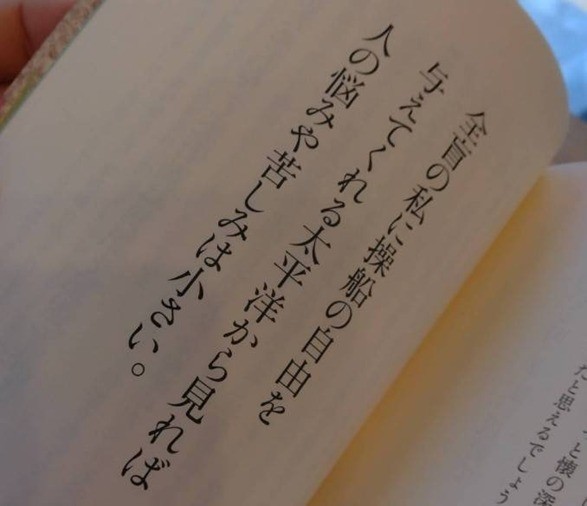 全盲の私に操船の自由を
与えてくれる太平洋から見れば
人の悩みや苦しみは小さい。
と懐の深
だと思えるでしょう